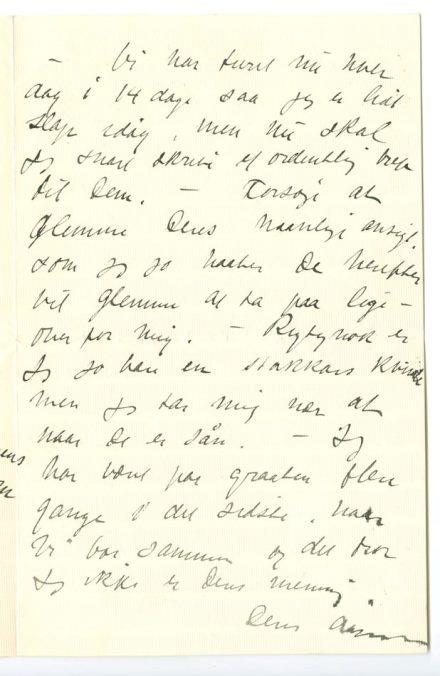 — Vi har turet nu hver
dag i 14 dage saa jeg er helt
slap idag, men nu skal
jeg snart skrive et ordentlig brev
til Dem. — Forsøg at
glemme Deres naarlige ansigt,
som jeg jo haaber De herefter
vil glemme at ta paa lige-
over for mig. — Rigtignok er
jeg jo bare en stakkars kvinde
men jeg tar mig nær at
naar De er sån. — Jeg
har vært paa graaten flere
gange i det sidste, naar
vi var sammen og det tror
jeg ikke er Deres mening.
Deres